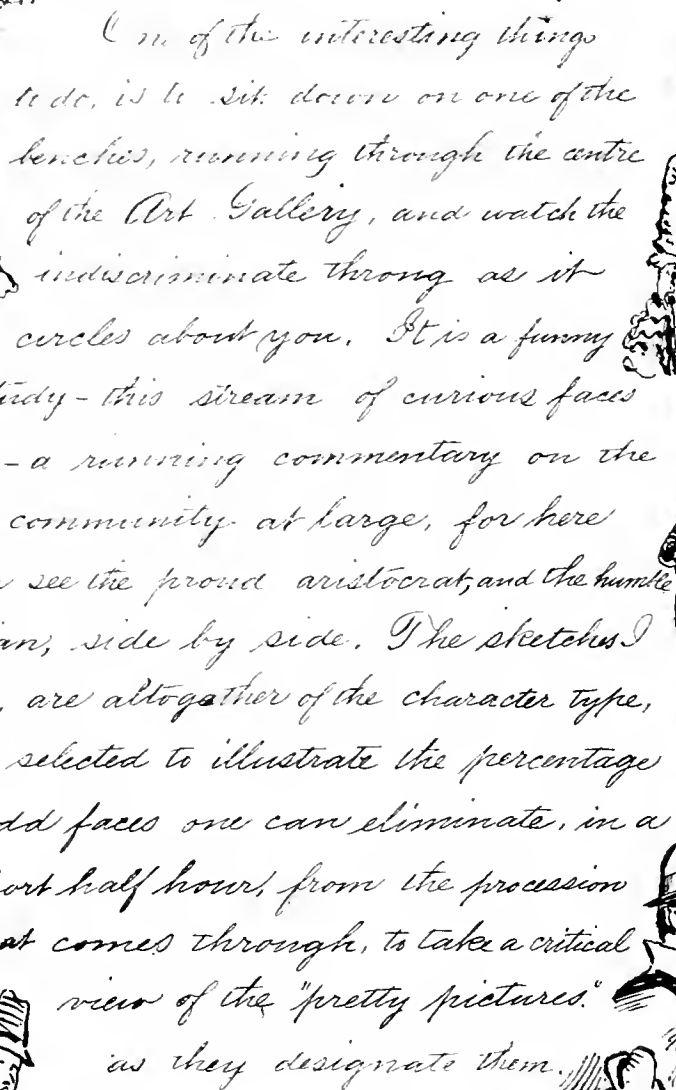 One of the interesting things
to do, is to sit down on one of the
benches, running through the centre
of the Art Gallery, and watch the
indiscriminate throng as it
circles about you. It is a funny
tudy - this stream of curious faces
- a running commentary on the
community at large, for here
see the proud aristocrat, and the humble
an, side by side. The sketches I
, are altogather of the character type,
selected to illustrate the percentage
dd faces one can eliminate, in a
ort half hour, from the procession
at comes through, to take a critical
view of the "pretty pictures."
as they designate them.